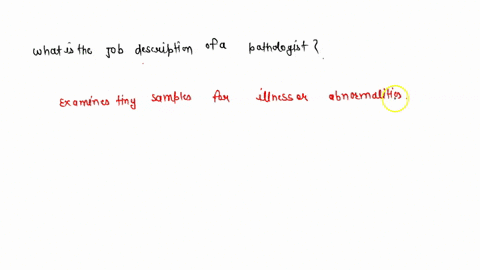 what is the job description of a pathologist?
Examines tiny samples for illness or abnormalities.